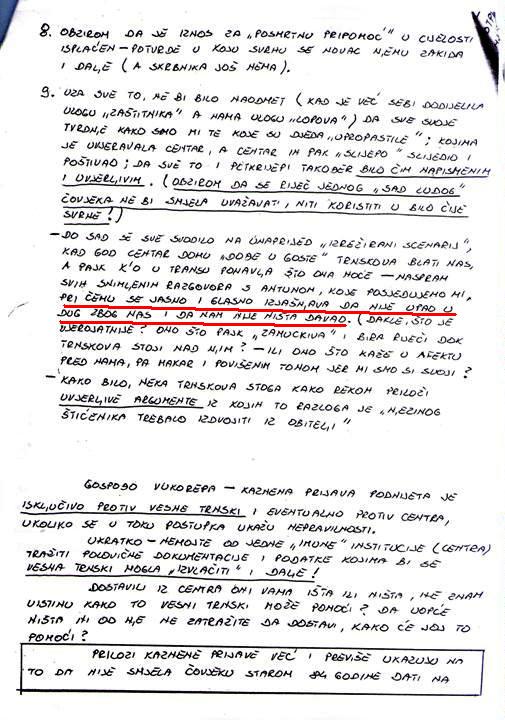 8. OBZIROM DA JE IZNOS ZA „POSMRTNU PRIPOMOĆ" U CIJELOSTI
ISPLAĆEN - POTVRDE U KOJU SVRHU SE NOVAC NJEMU ZAKIDA
I DALJE (A SKRBNIKA JOŠ NEMA).
9. UZA SVE TO, NE BI BILO NAODMET (KAD JE VEĆ SEBI DODIJELILA
ULOGU „ZAŠTITNIKA" A NAMA ULOGU „LOPOVA") DA SVE SVOJE
TVRDNJE KAKO SMO MI TE KOJE SU DJEDA „UPROPASTILE"; KOJIMA
JE UVJERAVALA CENTAR, A CENTAR IH PAK „SLIJEPO" SLIJEDIO I
POŠTIVAO; DA SVE TO I POTKRIJEPI TAKOĐER BILO ČIM NAPISMENIM
I UVJERLJIVIM. (OBZIROM DA SE RIJEČ JEDNOG „SAD LUDOG"
ČOVJEKA NE BI SMJELA UVAŽAVATI, NITI KORISTITI U BILO ČIJE
SVRHE!)
- DO SAD SE SVE SVODILO NA UNAPRIJED „IZREŽIRANI SCENARIJ",
KAD GOD CENTAR DOMU „DOĐE U GOSTE" TRNSKOVA BLATI NAS,
A PAJK K'O U TRANSU PONAVLJA ŠTO ONA HOĆE - NASPRAM
SVIH SNIMLJENIH RAZGOVORA S ANTUNOM, KOJE POSJEDUJEMO MI,
PRI ČEMU SE JASNO I GLASNO IZJAŠNJAVA DA NIJE UPAO U
DUG ZBOG NAS I DA NAM NIJE NIŠTA DAVAO. (DAKLE, ŠTO JE
VJEROJATNIJE? ONO ŠTO PAJK „ZAMUCKIVA" I BIRA RIJEČI DOK
TRNSKOVA STOJI NAD NJIM? - ILI ONO ŠTO KAŽE U AFEKTU
PRED NAMA, PA MAKAR I POVIŠENIM TONOM JER MI SMO SI SVOJI?
- KAKO BILO, NEKA TRNSKOVA STOGA KAKO REKOH PRILOŽI
UVJERLJIVE ARGUMENTE IZ KOJIH TO RAZLOGA JE „NJEZINOG
ŠTIĆENIKA TREBALO IZDVOJITI IZ OBITELJI"
GOSPOĐO VUKOREPA - KAZNENA PRIJAVA PODNIJETA JE
ISKLJUČIVO PROTIV VESNE TRNSKI I EVENTUALNO PROTIV CENTRA,
UKOLIKO SE U TOKU POSTUPKA UKAŽU NEPRAVILNOSTI.
UKRATKO - NEMOJTE OD JEDNE „IMUNE" INSTITUCIJE (CENTRA)
TRAŽITI POLOVIČNE DOKUMENTACIJE I PODATKE KOJIMA BI SE
VESNA TRNSKI MOGLA „IZVLAČITI" I DALJE!
DOSTAVILI IZ CENTRA ONI VAMA IŠTA ILI NIŠTA, NE ZNAM
UISTINU KAKO TO VESNI TRNSKI MOŽE POMOĆI? DA UOPĆE
NIŠTA NI OD NJE NE ZATRAŽITE DA DOSTAVI, KAKO ĆE JOJ TO
POMOĆI?
PRILOZI KAZNENE PRIJAVE VEĆ I PREVIŠE UKAZUJU NA
TO DA NIJE SMJELA ČOVJEKU STAROM 84 GODINE DATI NA